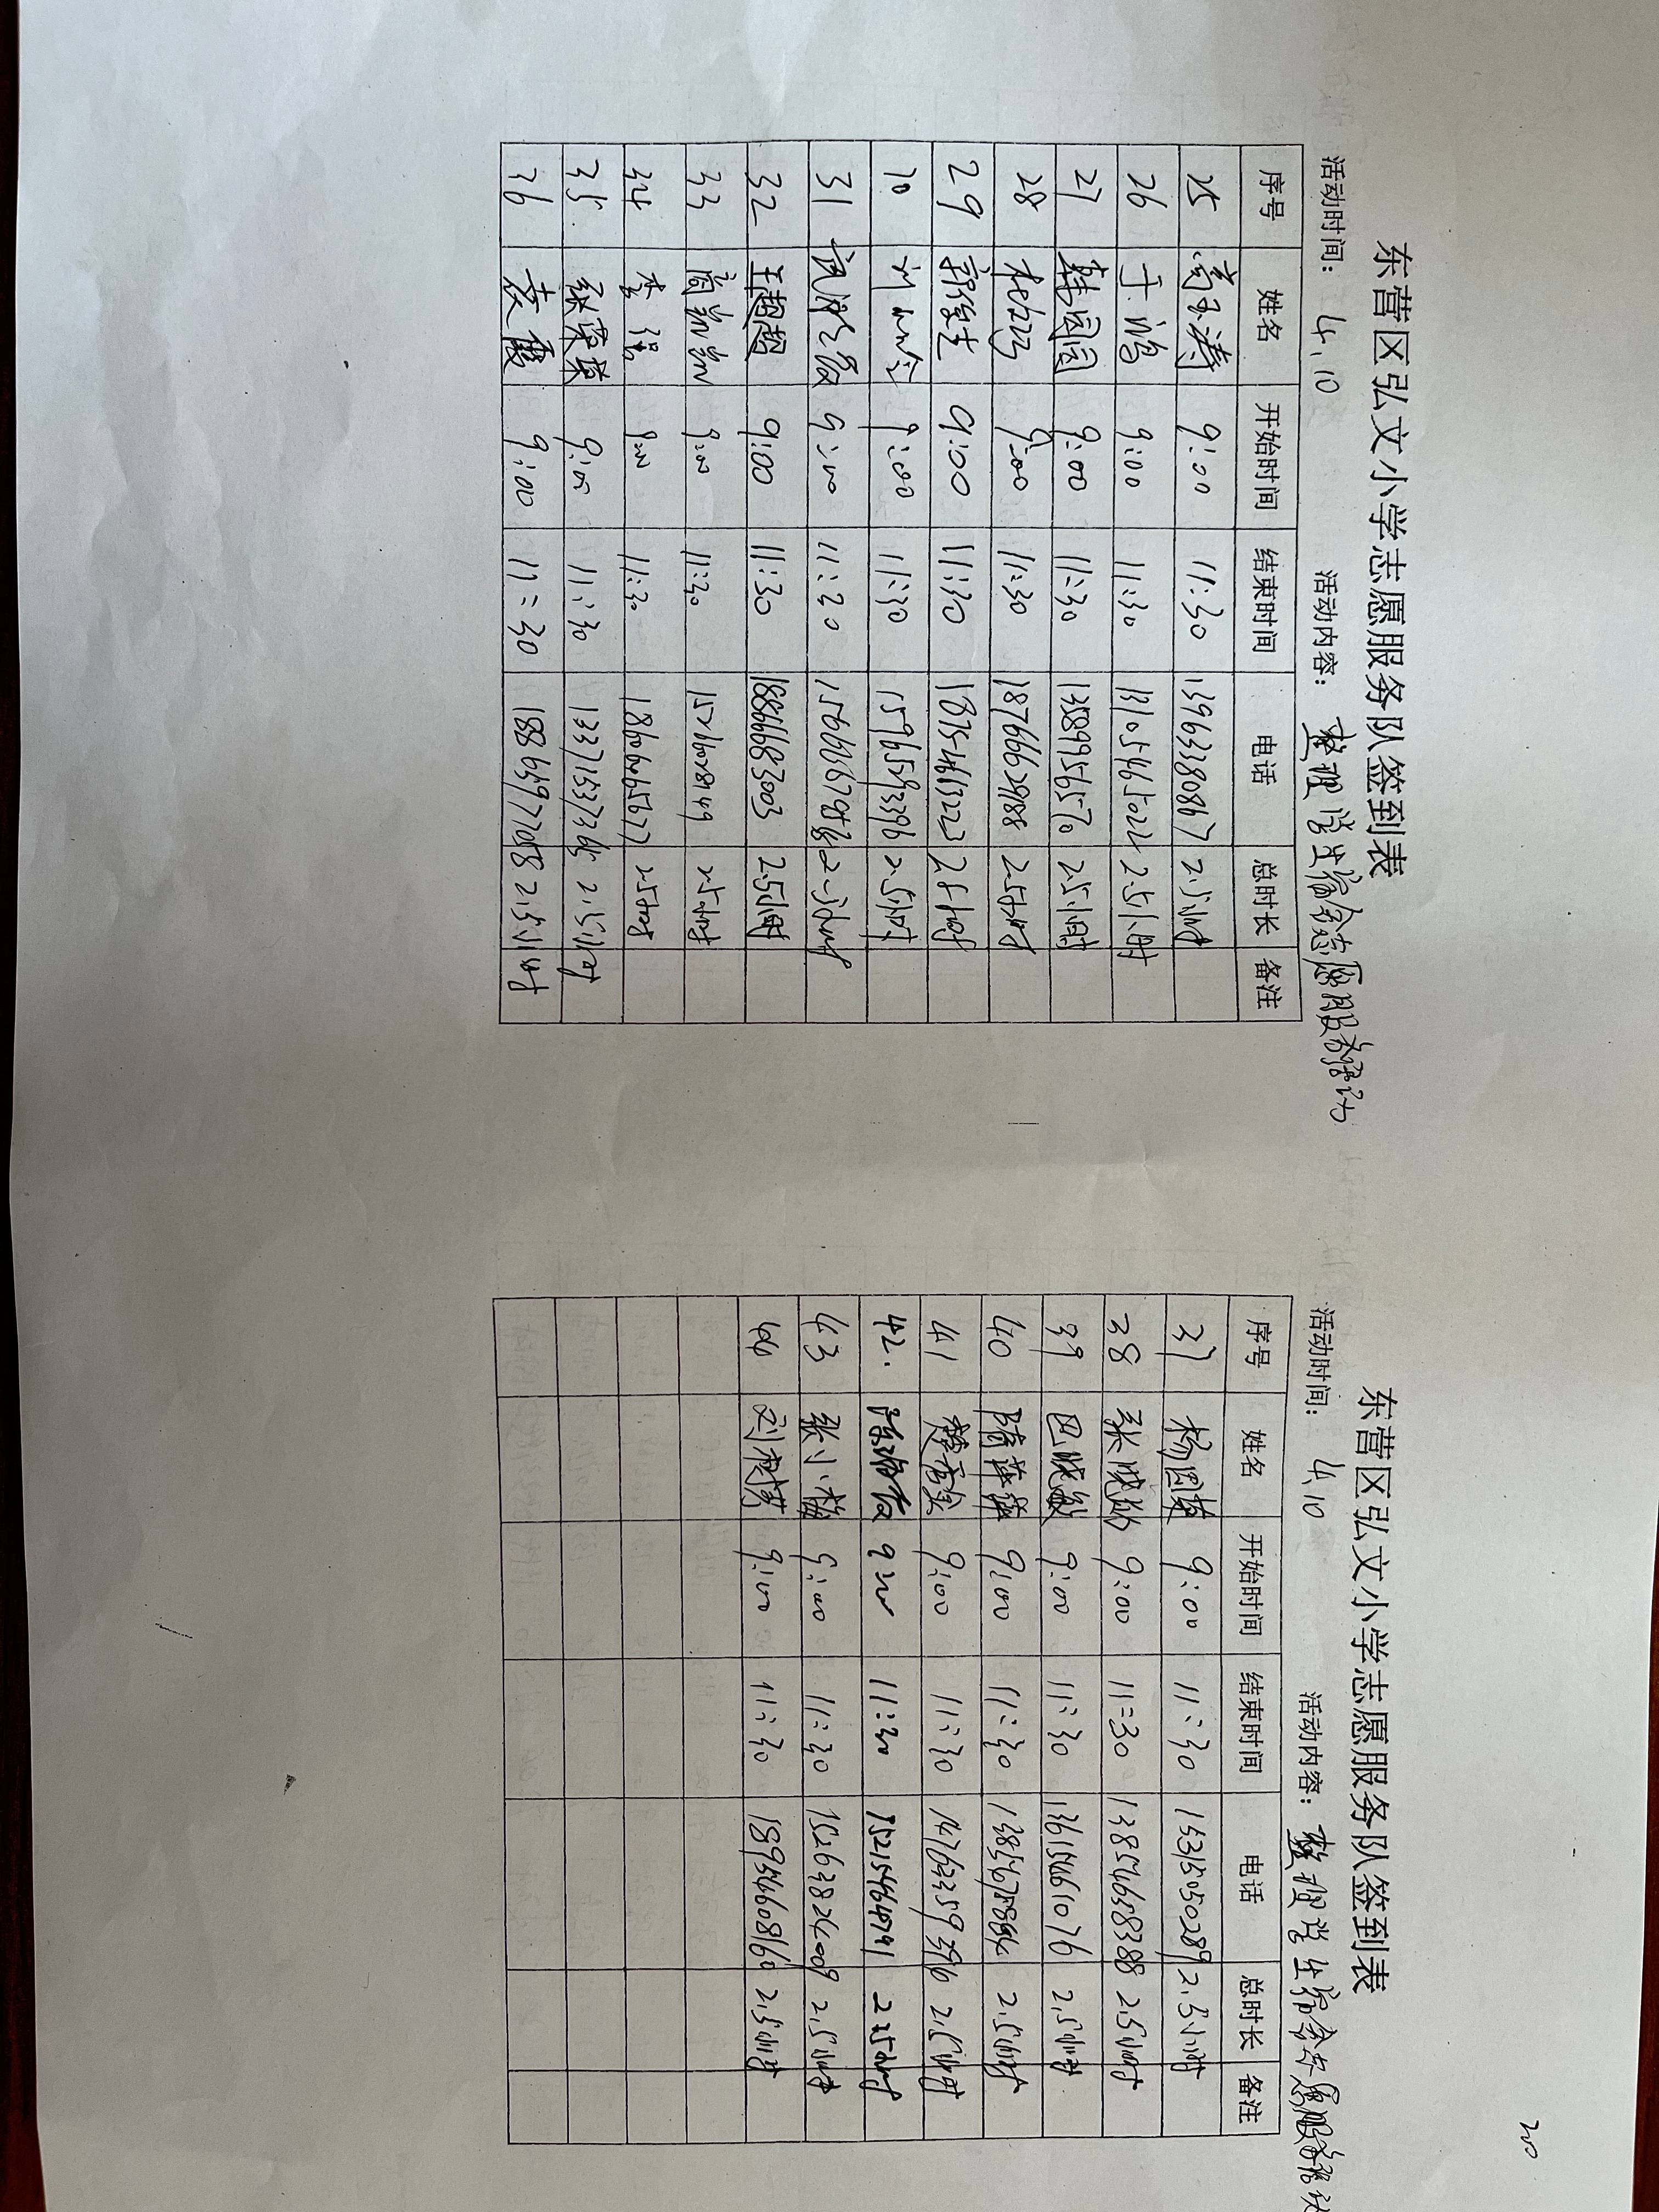 东营区弘文小学志愿服务队签到表
活动时间: 4.10 活动内容: 整理学生宿舍志愿服务活动
序号 姓名 开始时间 结束时间 电话 总时长 备注
25 9:00 11:30 13963380867 2.5小时
26 于鸿 9:00 11:30 2.5小时
27 韩园园 9:00 11:30 13589956570 2.5小时
28 9:00 11:30 18766629188 2.5小时
29 9:00 11:30 2.5小时
30 9:00 11:30 15965293396 2.5小时
31 9:00 11:30 2.5小时
32 王超超 9:00 11:30 18866683003 2.5小时
33 9:00 11:30 2.5小时
34 李强 9:00 11:30 18606465677 2.5小时
35. 9:00 11:30 13371537365 2.5小时
36 袁霞 9:00 11:30 18863977058 2.5小时
东营区弘文小学志愿服务队签到表
活动时间: 4.10 活动内容: 整理学生宿舍志愿服务活动
序号 姓名 开始时间 结束时间 电话 总时长 备注
37 9:00 11:30 15315050289 2.5小时
38 9:00 11:30 13854658388 2.5小时
39 巴晓敏 9:00 11:30 13615461076 2.5小时
40 9:00 11:30 2.5小时
41 9:00 11:30 14763359396 2.5小时
42. 9:00 11:30 15215464791 2.5小时
43 张小梅 9:00 11:30 15263824009 2.5小时
44 9:00 11:30 18954660816 2.5小时